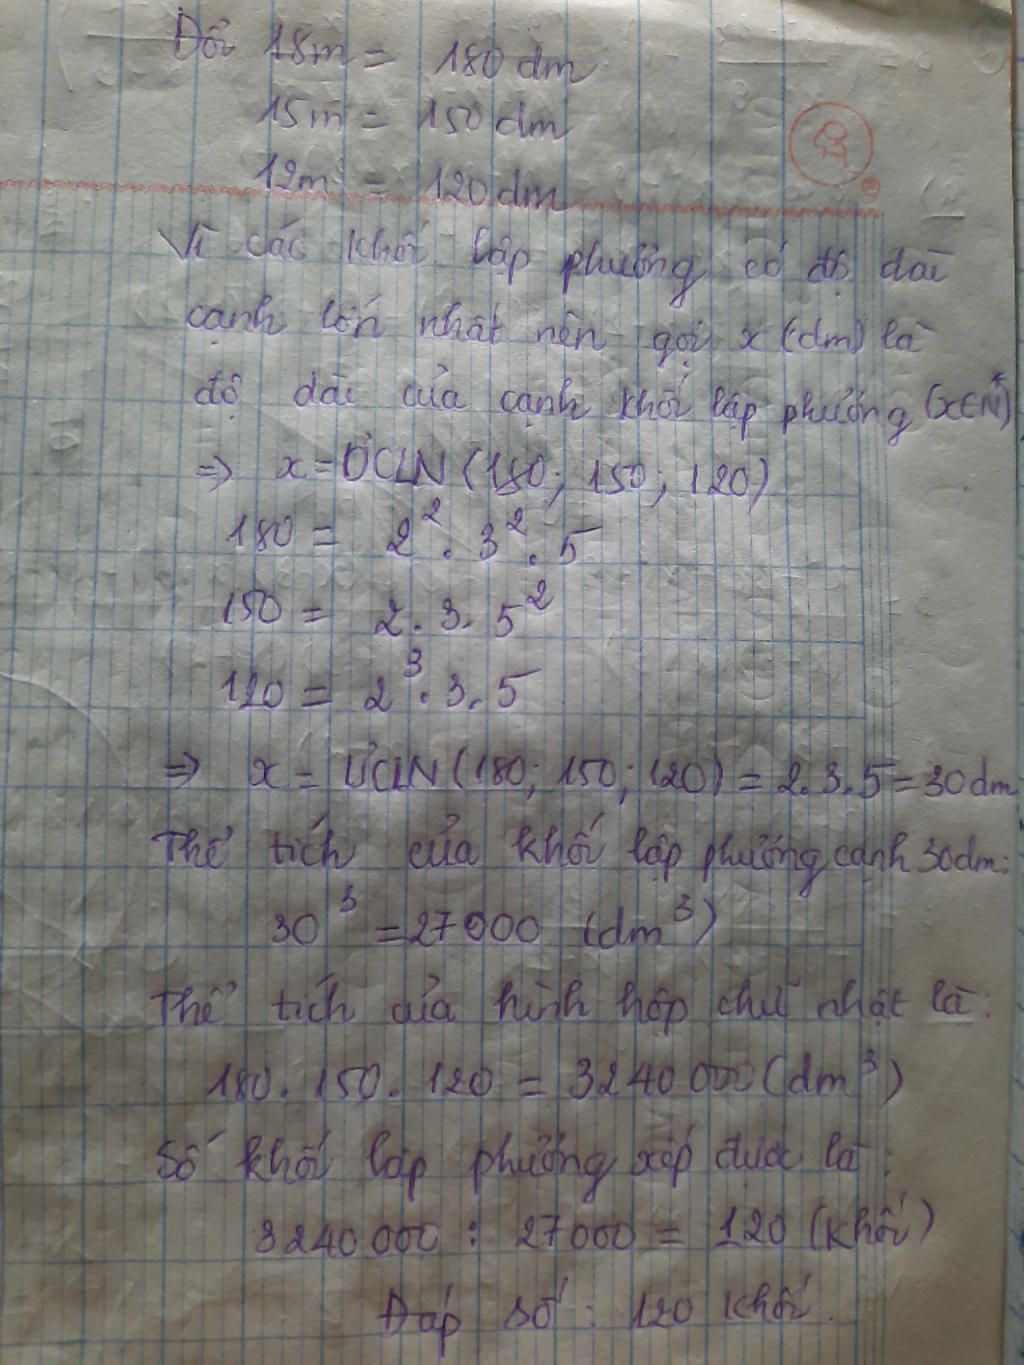 Đổi 18m = 180 dm
15m = 150 dm
12m = 120 dm
Vì các khối lập phương có độ dài
cạnh lớn nhất nên gọi x (dm) là
độ dài của cạnh khối lập phương (x∈N*)
=> x = ƯCLN (180; 150; 120)
180 = 2². 3². 5
150 = 2. 3. 5²
120 = 2³. 3. 5
=> x = ƯCLN (180; 150; 120) = 2. 3. 5 = 30 dm
Thể tích của khối lập phương cạnh 30dm:
30³ = 27000 (dm³)
Thể tích của hình hộp chữ nhật là:
180. 150. 120 = 3240 000 (dm³)
Số khối lập phương xếp được là:
3240 000 : 27000 = 120 (khối)
Đáp số : 120 khối.